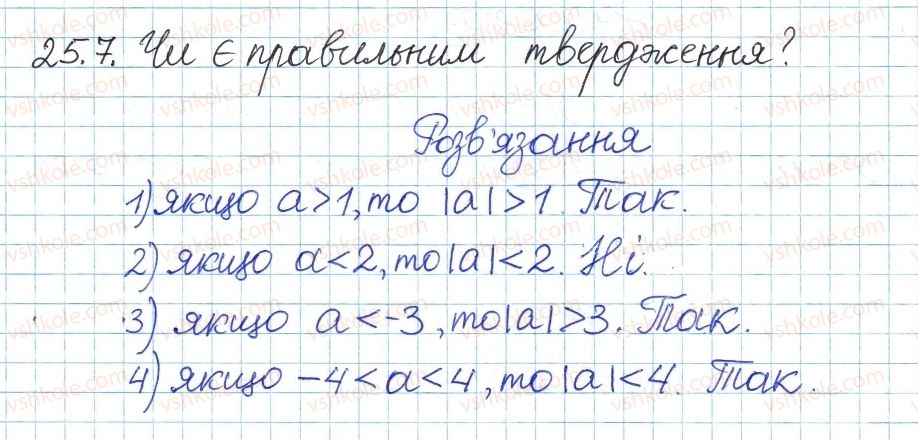 25.7. Чи є правильним твердження?
Розв'язання
1) якщо a>1, то |a|>1. Так.
2) якщо a<2, то |a|<2. Ні.
3) якщо a<-3, то |a|>3. Так.
4) якщо -4<a<4, то |a|<4. Так.